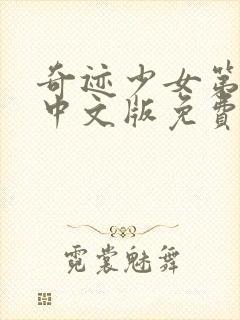 奇迹少女第
中文版免费
霓裳魅舞